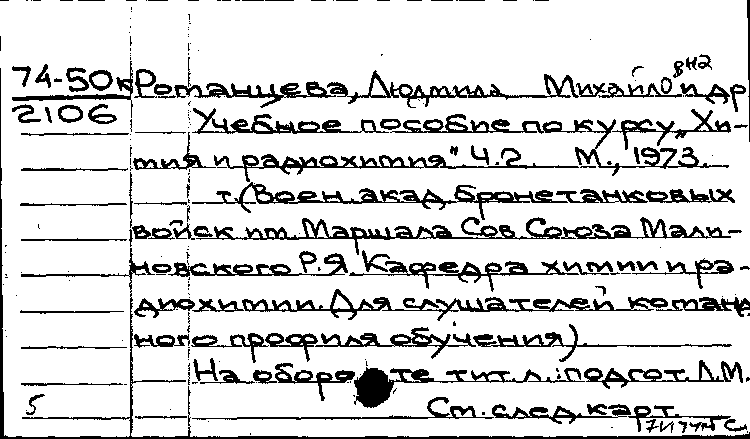 74-50к Романцева, Людмила Михайловна и др
2106 Учебное пособие по курсу „Хи-
мия и радиохимия". Ч.2. М., 1973.
т. (Воен. акад. бронетанковых
войск им. Маршала Сов. Союза Мали-
новского Р.Я. Кафедра химии и ра-
диохимии. Для слушателей команд
ного профиля обучения).
На оборо те тит. л.: подгот. Л.М.
5 См. след. карт.